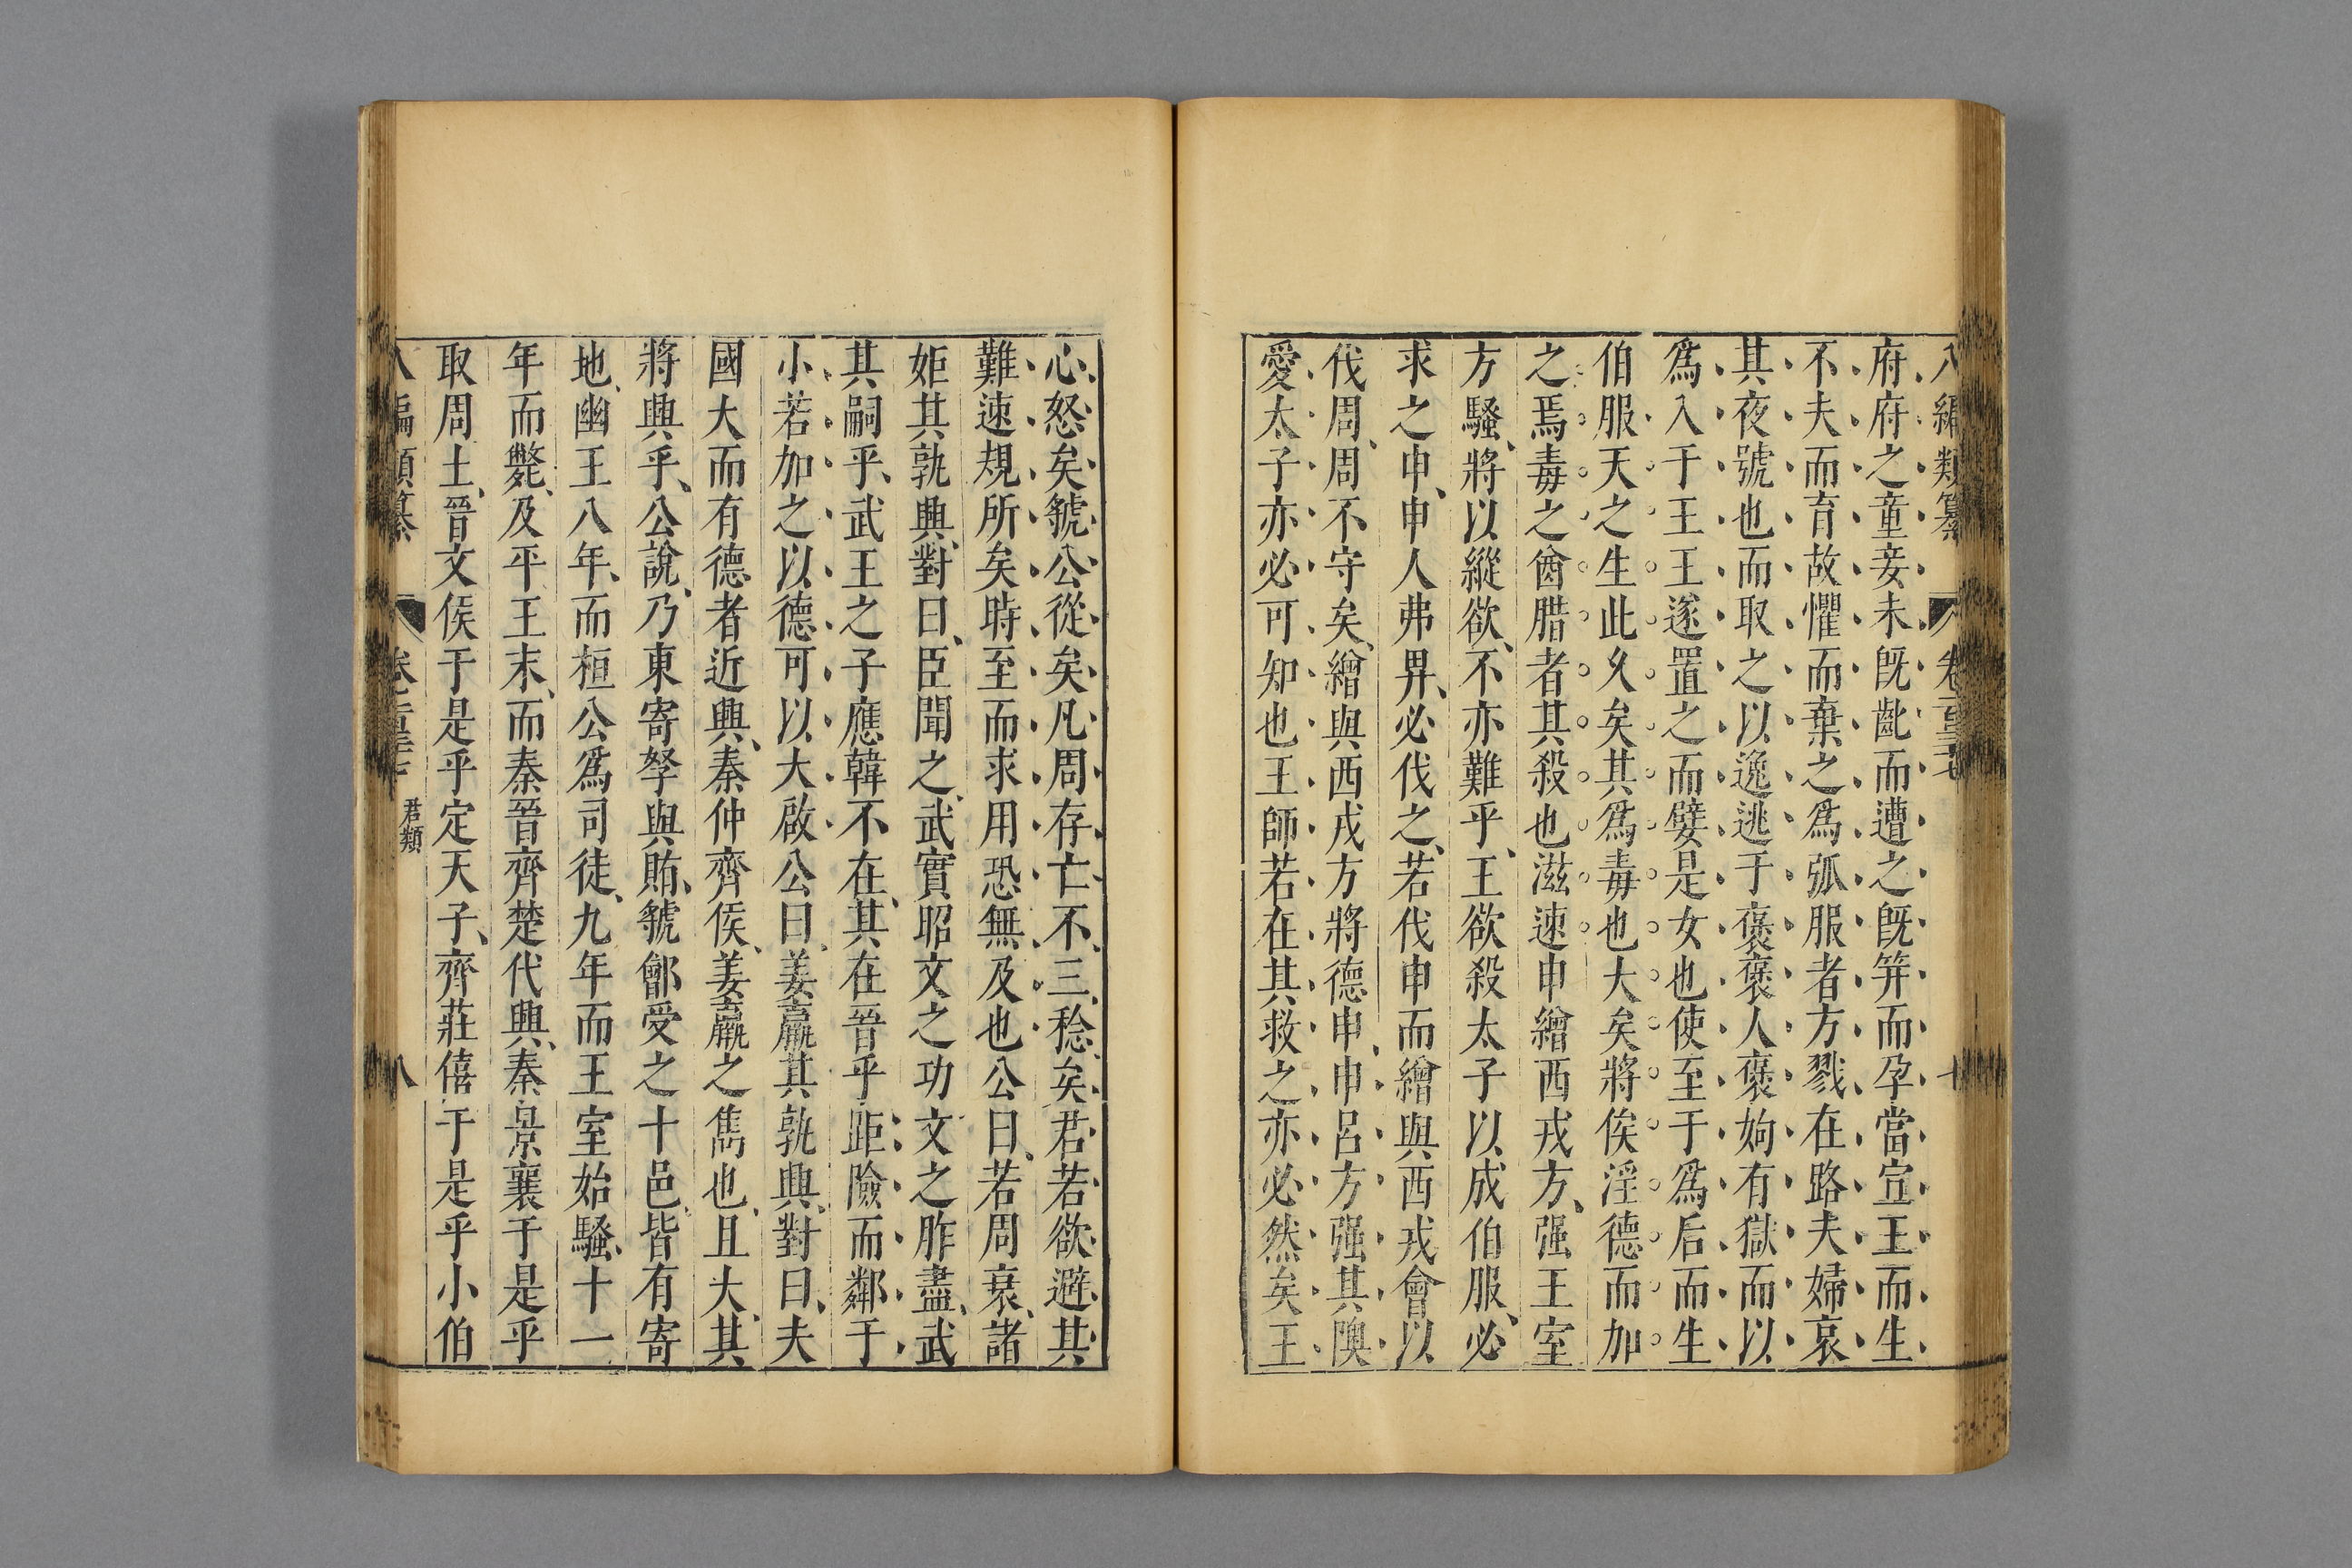 八編類纂 卷一百三七 十
府府之童妾未旣齔而遭之旣笄而孕當宣王而生
不夫而育故懼而棄之爲弧服者方戮在路夫婦哀
其夜號也而取之以逸逃于褒褒人褒姁有獄而以
爲入于王王遂置之而嬖是女也使至于爲后而生
伯服天之生此久矣其爲毒也大矣將俟淫德而加
之焉毒之酋腊者其殺也滋速申繒西戎方强王室
方騷將以縱欲不亦難乎王欲殺太子以成伯服必
求之申申人弗畀必伐之若伐申而繒與西戎會以
伐周周不守矣繒與西戎方將德申申呂方强其隩
愛太子亦必可知也王師若在其救之亦必然矣王
心怒矣虢公從矣凡周存亡不三稔矣君若欲避其
難速規所矣時至而求用恐無及也公曰若周衰諸
姬其孰興對曰臣聞之武實昭文之功文之胙盡武
其嗣乎武王之子應韓不在其在晉乎距險而鄰于
小若加之以德可以大啟公曰姜嬴其孰興對曰夫
國大而有德者近興秦仲齊侯姜嬴之雋也且大其
將興乎公說乃東寄孥與賄虢鄶受之十邑皆有寄
地幽王八年而桓公爲司徒九年而王室始騷十一
年而斃及平王末而秦晉齊楚代興秦景襄于是乎
取周土晉文侯于是乎定天子齊莊僖于是乎小伯
八編類纂 卷一百三七 君類 八